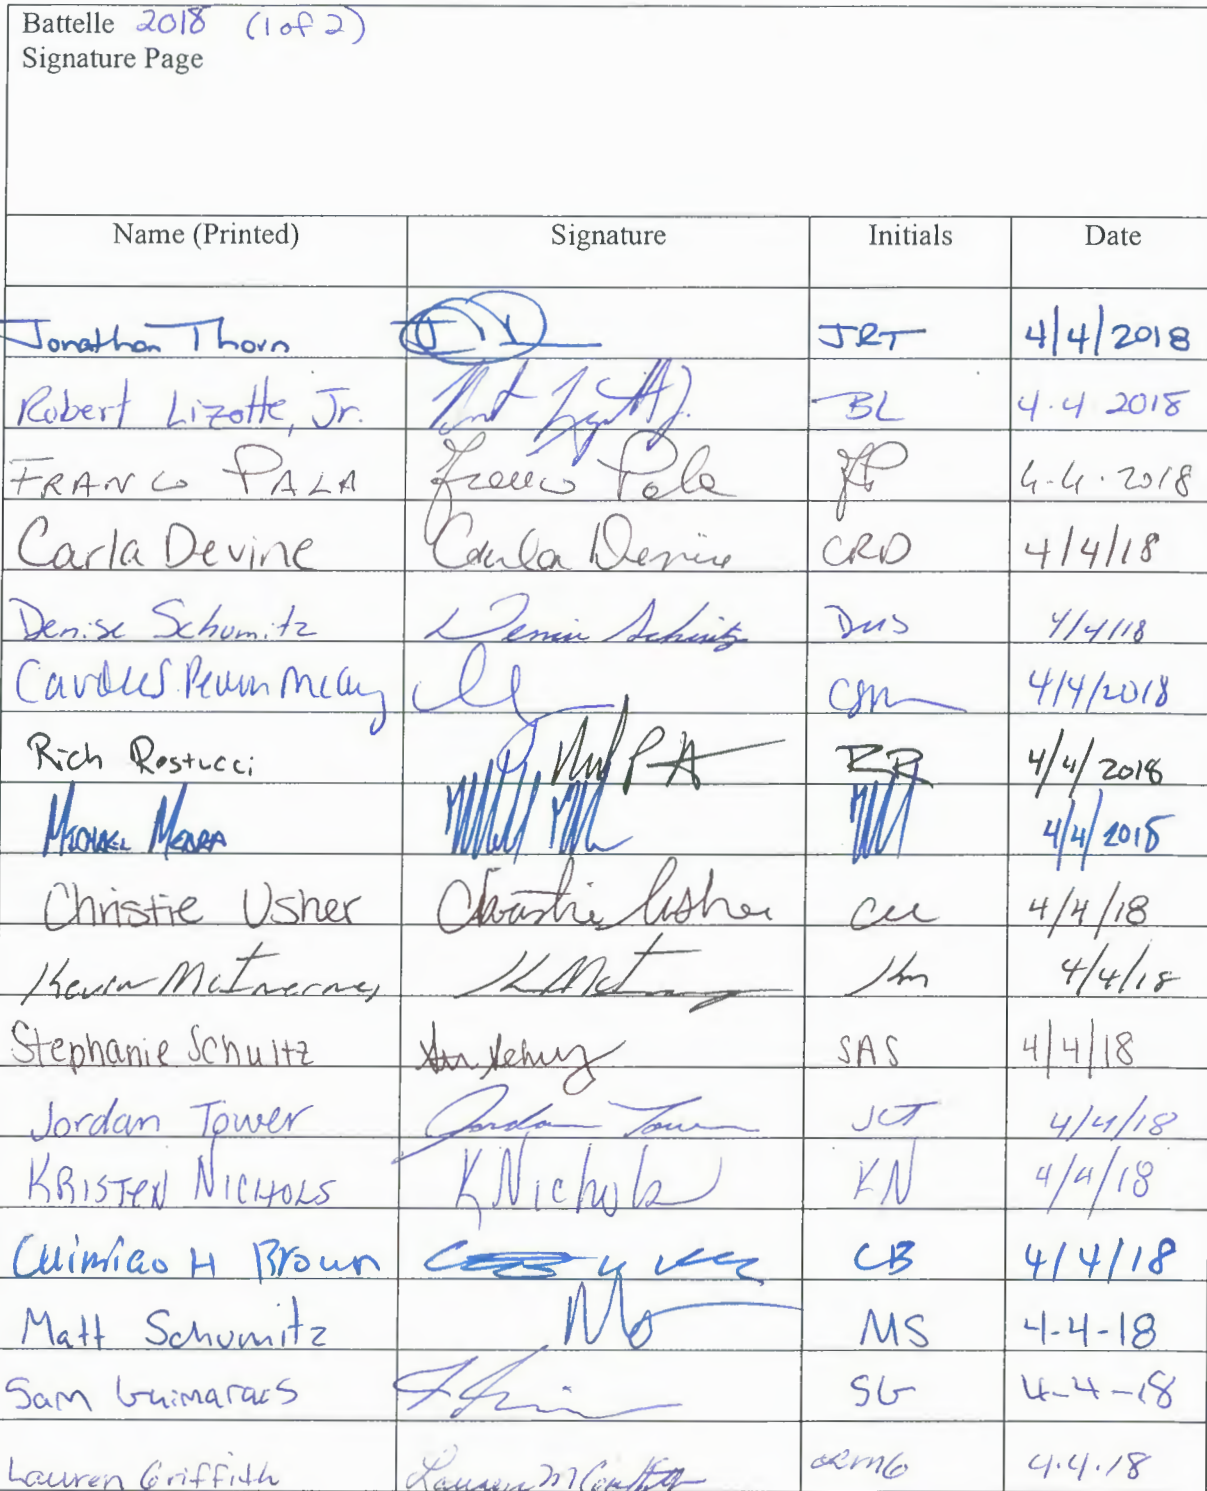 Battelle 2018 (1 of 2)
Signature Page
Name (Printed) Signature Initials Date
Jonathan Thorn JRT 4/4/2018
Robert Lizotte, Jr. BL 4.4 2018
FRANCO PALA Franco Pala FP 4.4.2018
Carla Devine Carla Devine CRD 4/4/18
Denise Schumitz Denise Schumitz DMS 4/4/18
4/4/2018
Rich Restucci RR 4/4/2018
MICHAEL MEARA 4/4/2018
Christie Usher Christie Usher CU 4/4/18
Kevin McInerney KM 4/4/18
Stephanie Schultz SAS 4/4/18
Jordan Tower Jordan Tower JCT 4/4/18
KRISTEN NICHOLS K Nichols KN 4/4/18
H Brown CB 4/4/18
Matt Schumitz MS 4-4-18
Sam Guimaraes SG 4-4-18
Lauren Griffith Lauren M Griffith LRMG 4.4.18